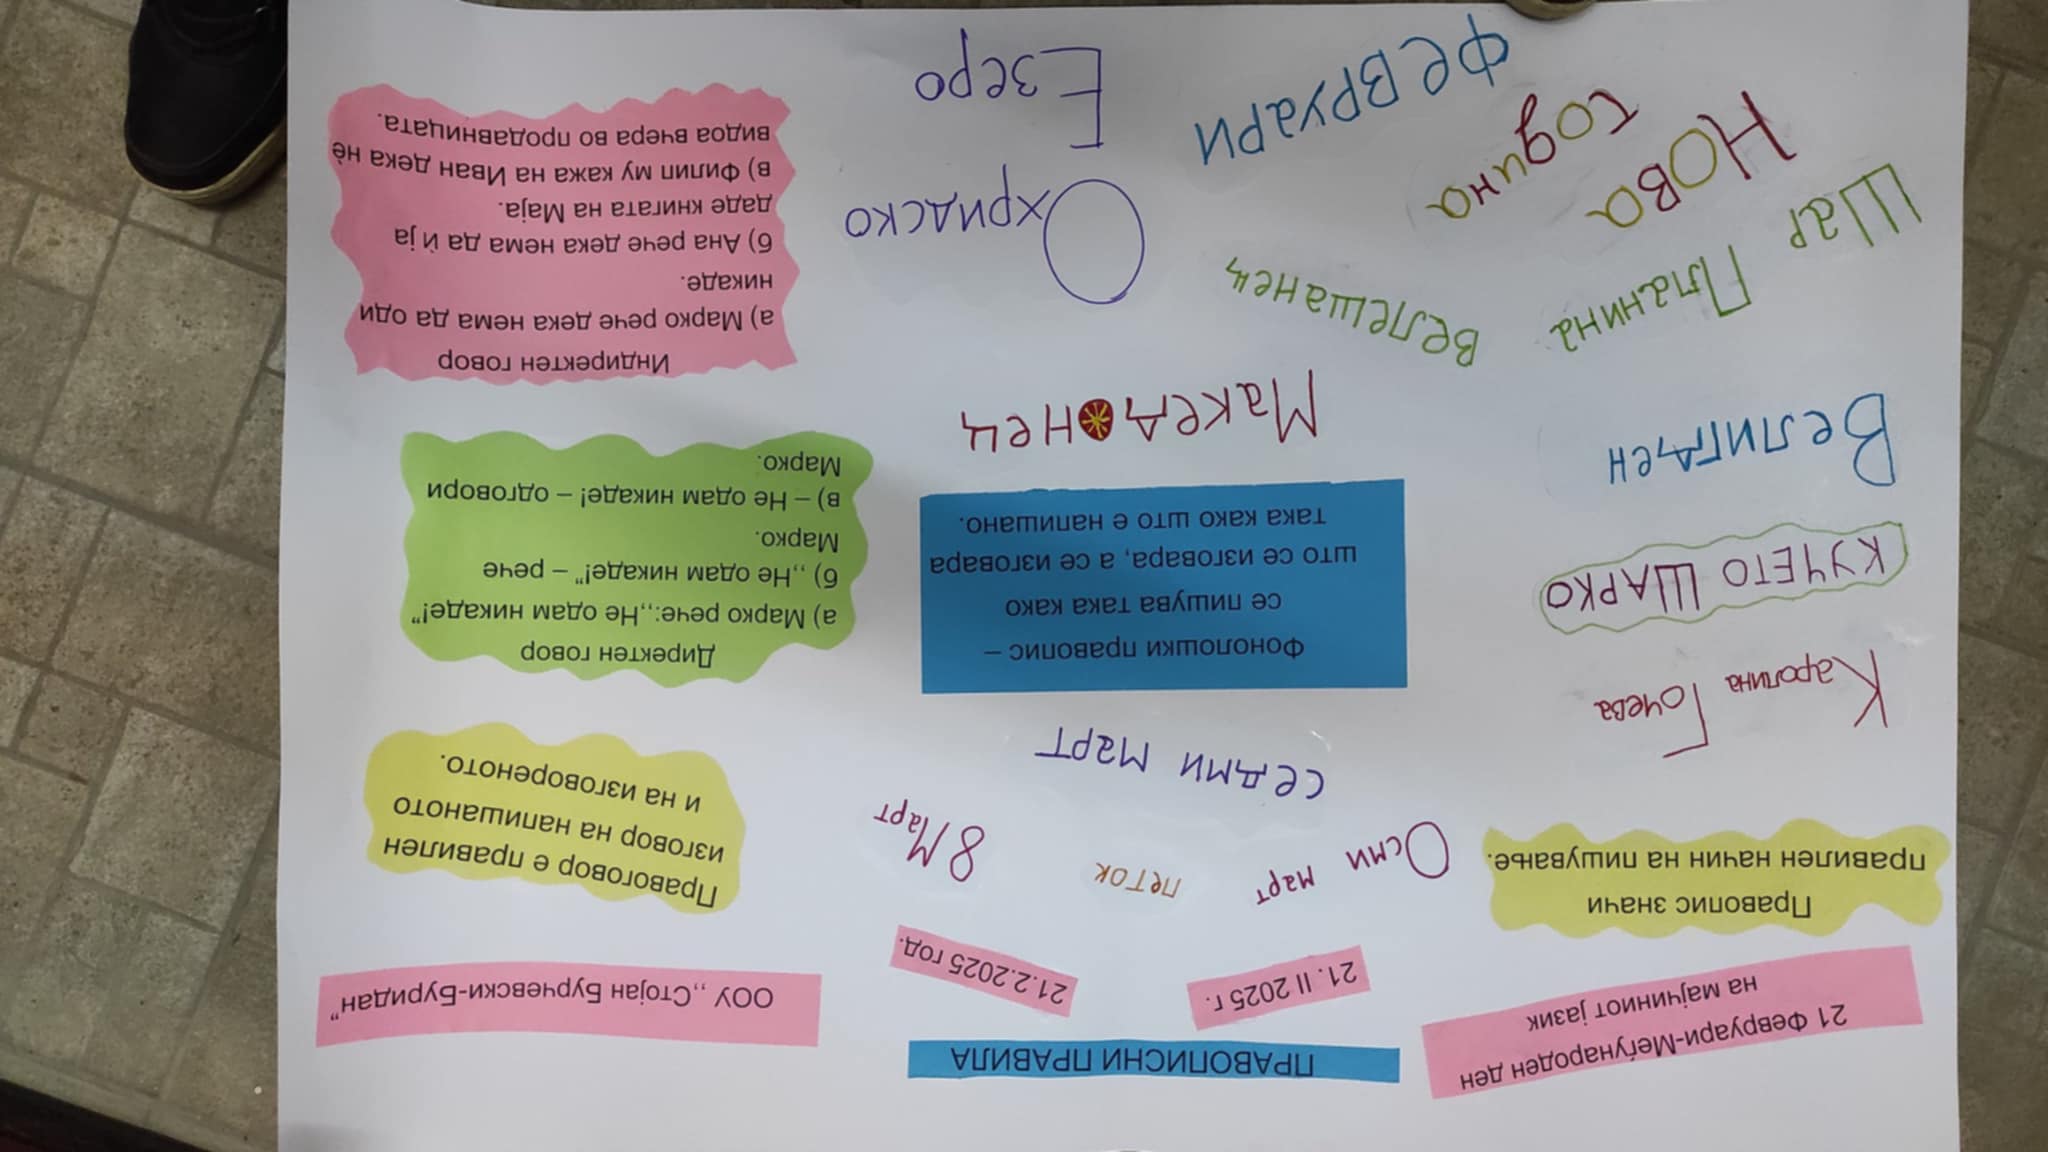 21 Февруари-Меѓународен ден
на мајчиниот јазик
ПРАВОПИСНИ ПРАВИЛА
ООУ ,,Стојан Бурчевски-Буридан“
21. II 2025 г.
21.2.2025 год.
Правопис значи
правилен начин на пишување.
Осми март
петок
8 Март
Правоговор е правилен
изговор на напишаното
и на изговореното.
Каролина Гочева
седми март
КУЧЕТО ШАРКО
Фонолошки правопис –
се пишува така како
што се изговара, а се изговара
така како што е напишано.
Директен говор
а) Марко рече:,,Не одам никаде!“
б) ,,Не одам никаде!“ – рече
Марко.
в) – Не одам никаде! – одговори
Марко.
Велигден
Македонец
Индиректен говор
а) Марко рече дека нема да оди
никаде.
б) Ана рече дека нема да ѝ ја
даде книгата на Маја.
в) Филип му кажа на Иван дека нѐ
видоа вчера во продавницата.
Шар Планина
велешанец
Нова
година
Охридско
Езеро
февруари